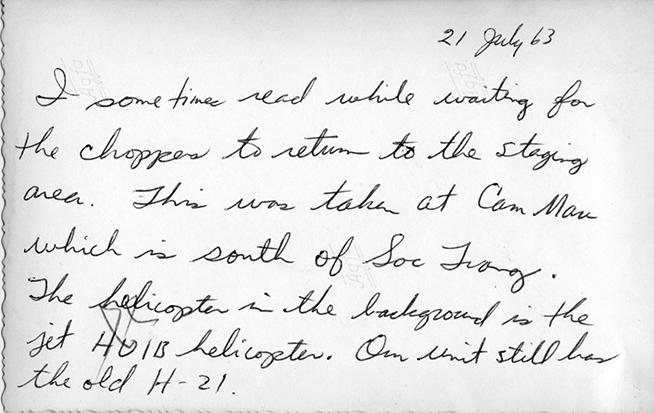 21 July 63
I sometimes read while waiting for
the choppers to return to the staging
area. This was taken at Cam Mau
which is south of Soc Trang.
The helicopter in the background is the
jet HU1B helicopter. Our unit still has
the old H-21.